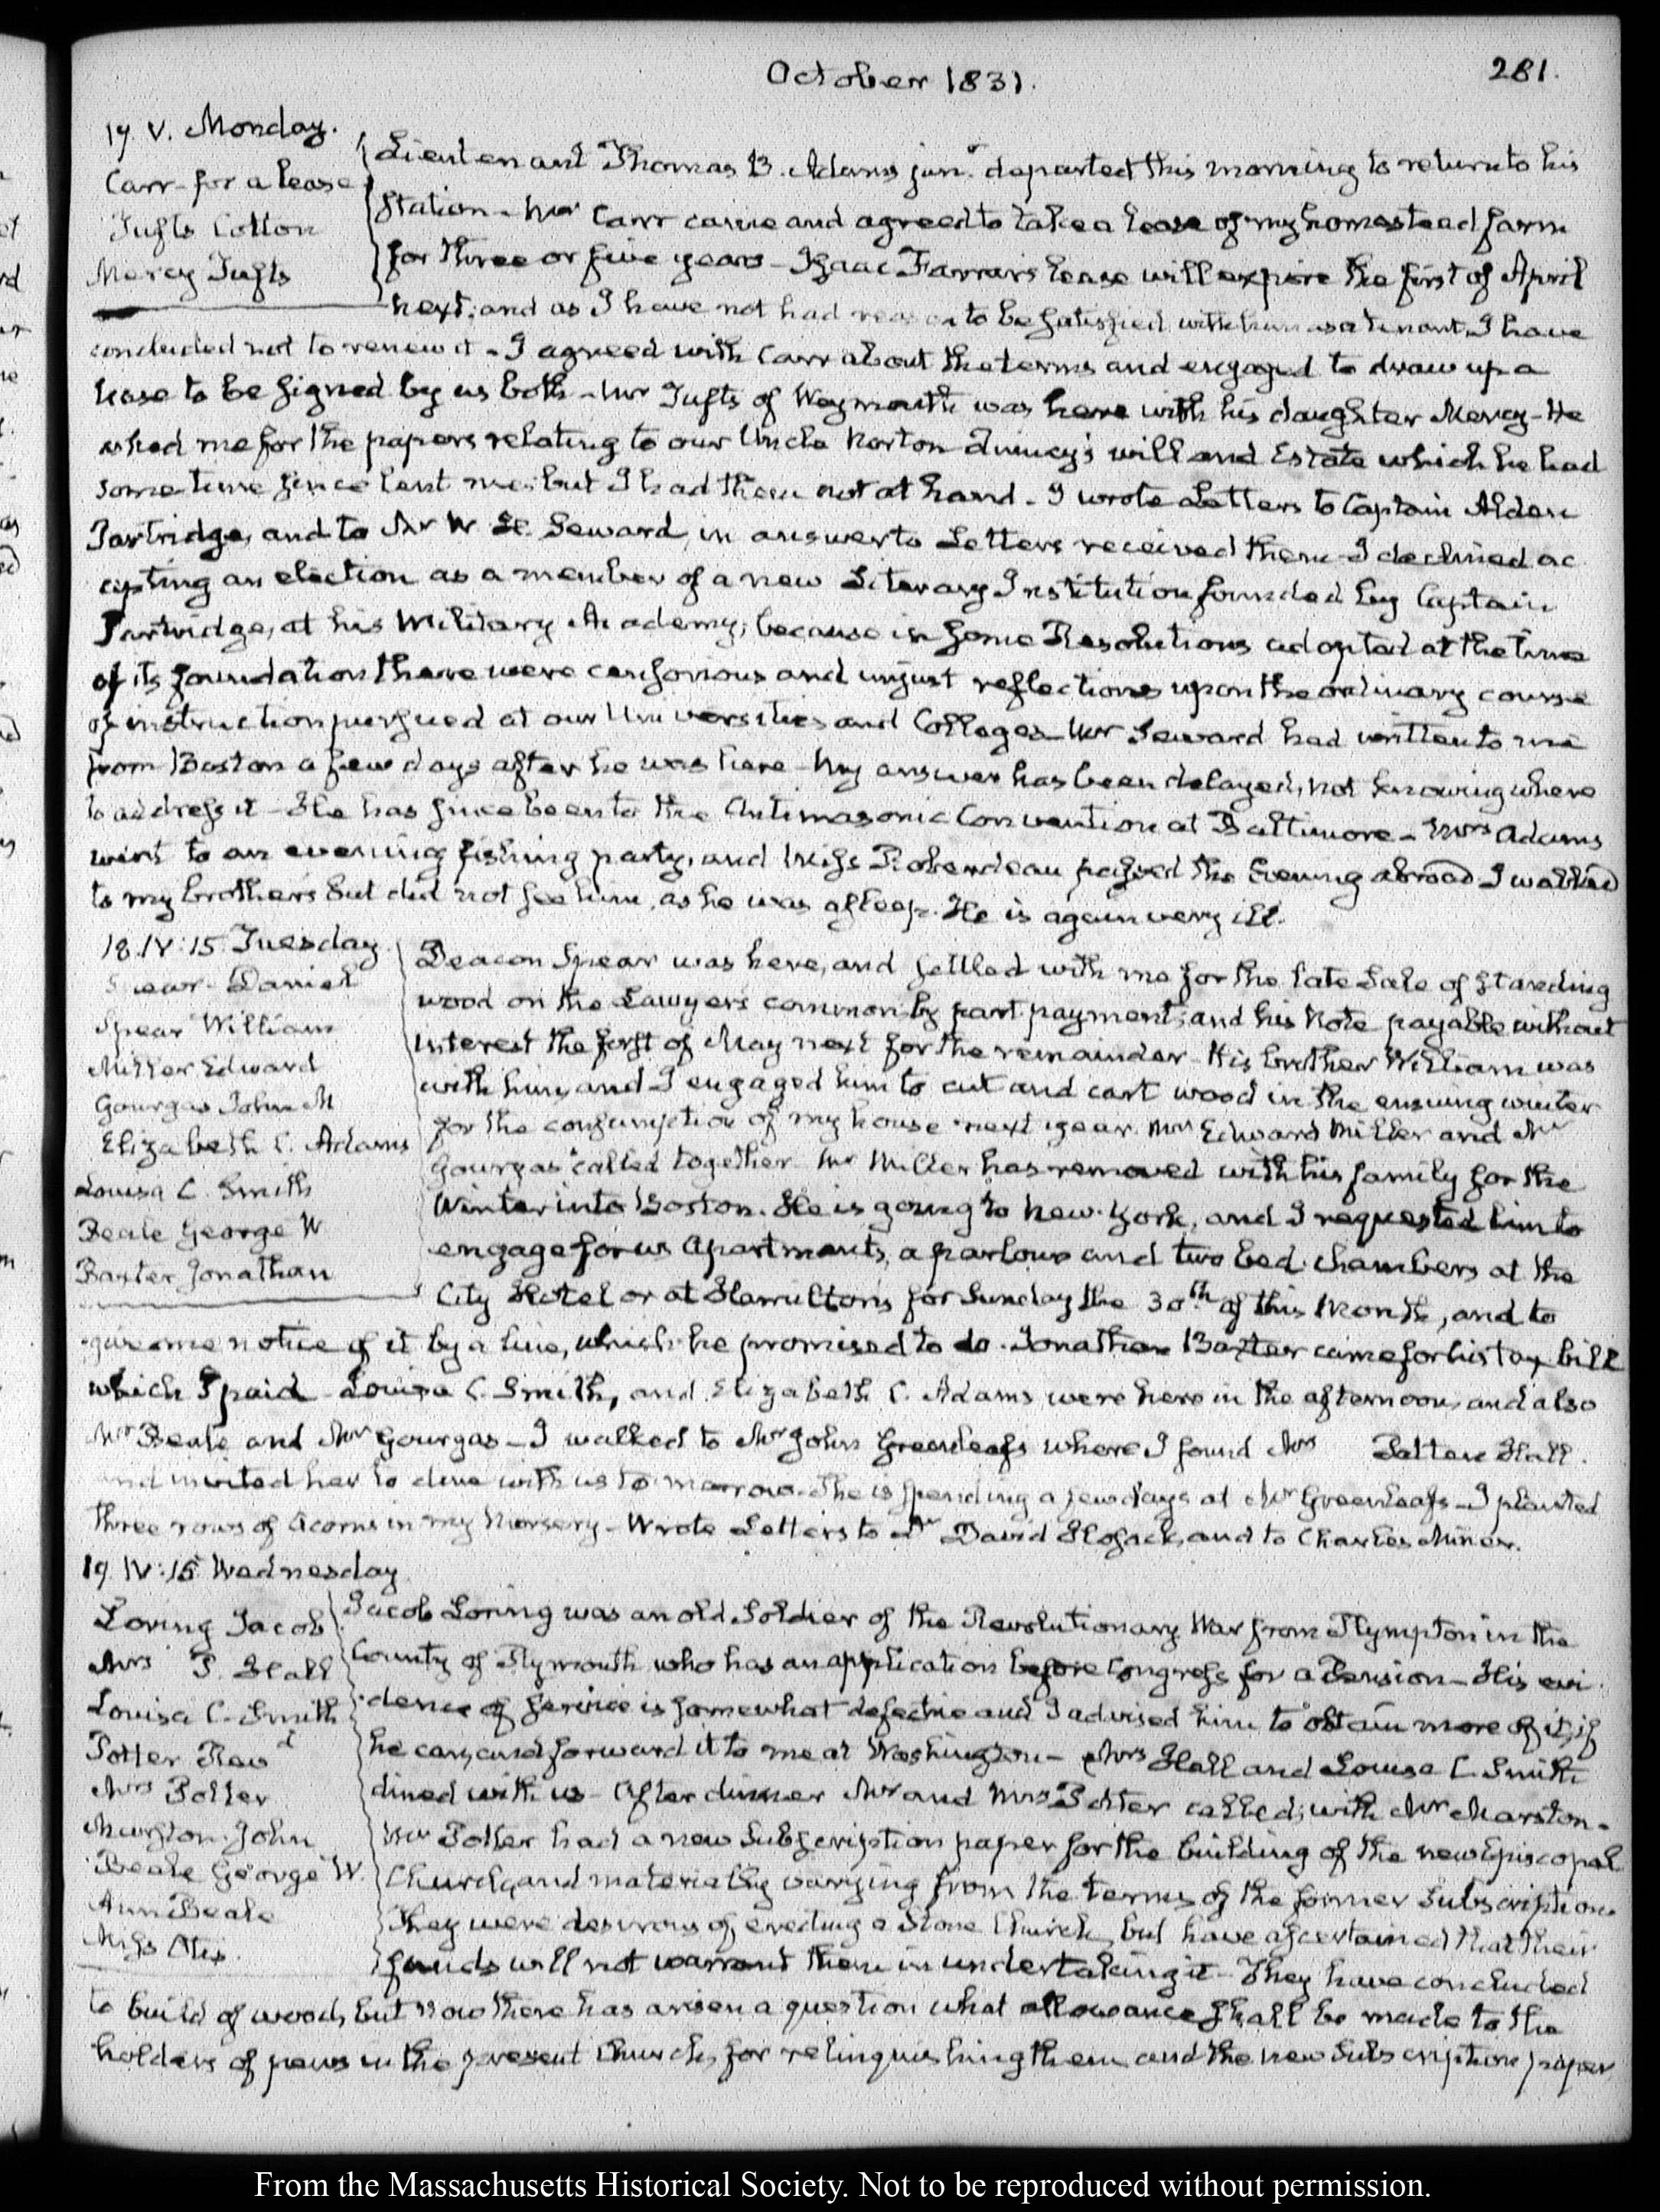 October 1831.
281.
17. V. Monday.
Carr- for a lease
Tufts Cotton
Mercy Tufts
Lieutenant Thomas B. Adams junr. departed this morning to return to his
Station- Mr Carr came and agreed to take a lease of my homestead farm
for three or five years- Isaac Farrar's lease will expire the first of April
next; and as I have not had reason to be satisfied with him as a tenant, I have
concluded not to renew it- I agreed with Carr about the terms and engaged to draw up a
lease to be signed by us both- Mr Tufts of Weymouth was here with his daughter Mercy- He
asked me for the papers relating to our Uncle Norton Quincy's will and Estate which he had
some time since lent me: but I had them not at hand- I wrote Letters to Captain Alden
Partridge, and to Mr W. H. Seward, in answer to Letters received them- I declined ac
cepting an election as a member of a new Literary Institution founded by Captain
Partridge, at his Military Academy; because in some Resolutions adopted at the time
of its foundation there were censorious and unjust reflections upon the ordinary course
of instruction pursued at our Universities and Colleges- Mr Seward had written to me
from Boston a few days after he was here- My answer has been delayed, not knowing where
to address it- He has since been to the Antimasonic Convention at Baltimore- Mrs Adams
went to an evening fishing party, and Miss Roberdeau passed the Evening abroad I walked
to my brother's but did not see him, as he was asleep. He is again very ill.
18. IV:15 Tuesday
Spear- Daniel
Spear William
Miller Edward
Gourgas John M
Elizabeth C. Adams
Louisa C. Smith
Beale George W
Baxter Jonathan
Deacon Spear was here, and settled with me for the late Sale of standing
wood on the Lawyer's common by part payment; and his Note payable without
Interest the first of May next for the remainder- His brother William was
with him, and I engaged him to cut and cart wood in the ensuing winter
for the consumption of my house next year. Mr Edward Miller and Mr
Gourgas called together. Mr Miller has removed with his family for the
Winter into Boston. He is going to New-York, and I requested him to
engage for us Apartments, a parlour and two bed chambers at the
City Hotel or at Hamilton's for Sunday the 30th of this Month, and to
give me notice of it by a line, which he promised to do. Jonathan Baxter came for his tax bill
which I paid- Louisa C. Smith, and Elizabeth C. Adams were here in the afternoon, and also
Mr Beale and Mr Gourgas- I walked to Mr John Greenleaf's where I found Mrs Patten Hall.
and invited her to dine with us to-morrow. She is spending a few days at Mr Greenleaf's- I planted
three rows of Acorns in my Nursery- Wrote Letters to Dr David Hosack, and to Charles Miner.
19. IV:15 Wednesday
Loring Jacob
Mrs P. Hall
Louisa C. Smith
Potter Revd
Mrs Potter
Marston John
Beale George W.
Ann Beale
Miss Otis.
Jacob Loring was an old Soldier of the Revolutionary War from Plympton in the
County of Plymouth who has an application before Congress for a Pension- His evi
dence of service is somewhat defective and I advised him to obtain more of it, if
he can, and forward it to me at Washington- Mrs Hall and Louisa C. Smith
dined with us- After dinner Mr and Mrs Potter called; with Mr Marston-
Mr Potter had a new Subscription paper for the building of the new Episcopal
Church, and materially varying from the terms of the former Subscription.
They were desirous of erecting a Stone Church, but have ascertained that their
funds will not warrant them in undertaking it- They have concluded
to build of wood, but now there has arisen a question what allowance shall be made to the
holders of pews in the present Church, for relinquishing them and the new Subscription paper
From the Massachusetts Historical Society. Not to be reproduced without permission.